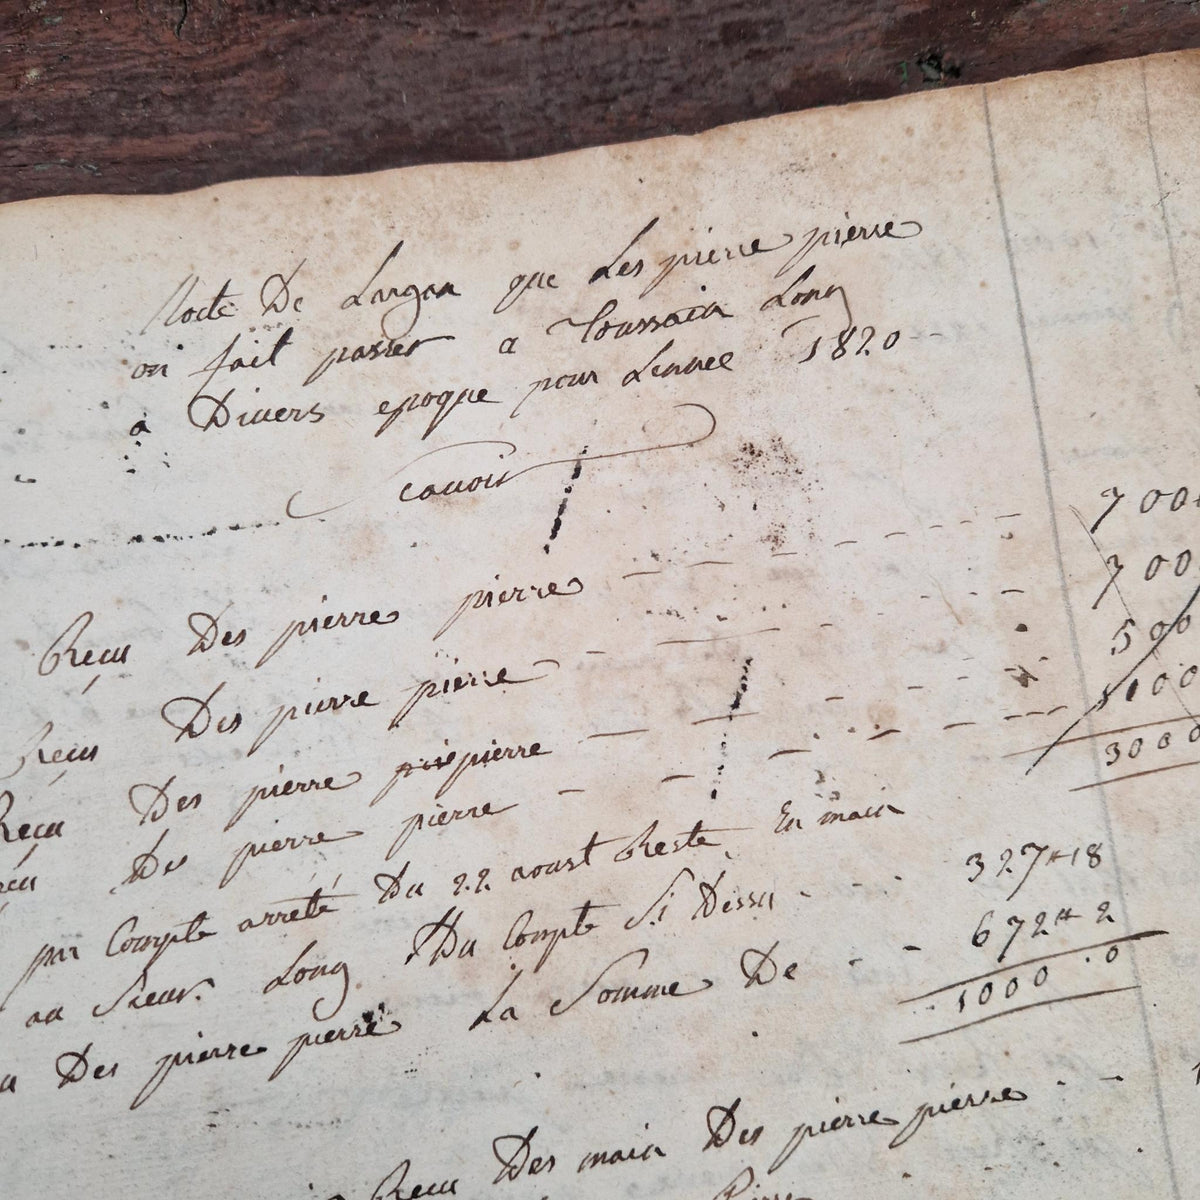 Notte De Largan que Les pierre pierre
on fait passer a Toussain Long
a Divers epoque pour Lennee 1820
Scavoir
Reçu Des pierre pierre 700
Reçu Des pierre pierre 700
Reçu Des pierre pierre 500
Des pierre pierre 1100
3000
par Compte arrété Du 22 aoust Reste En main
au Sieur Long Du Compte Si Dessu 327 ₶ 18
Des pierre pierre La Somme De 672 ₶ 2
1000 0
Reçu Des main Des pierre pierre
Pierre